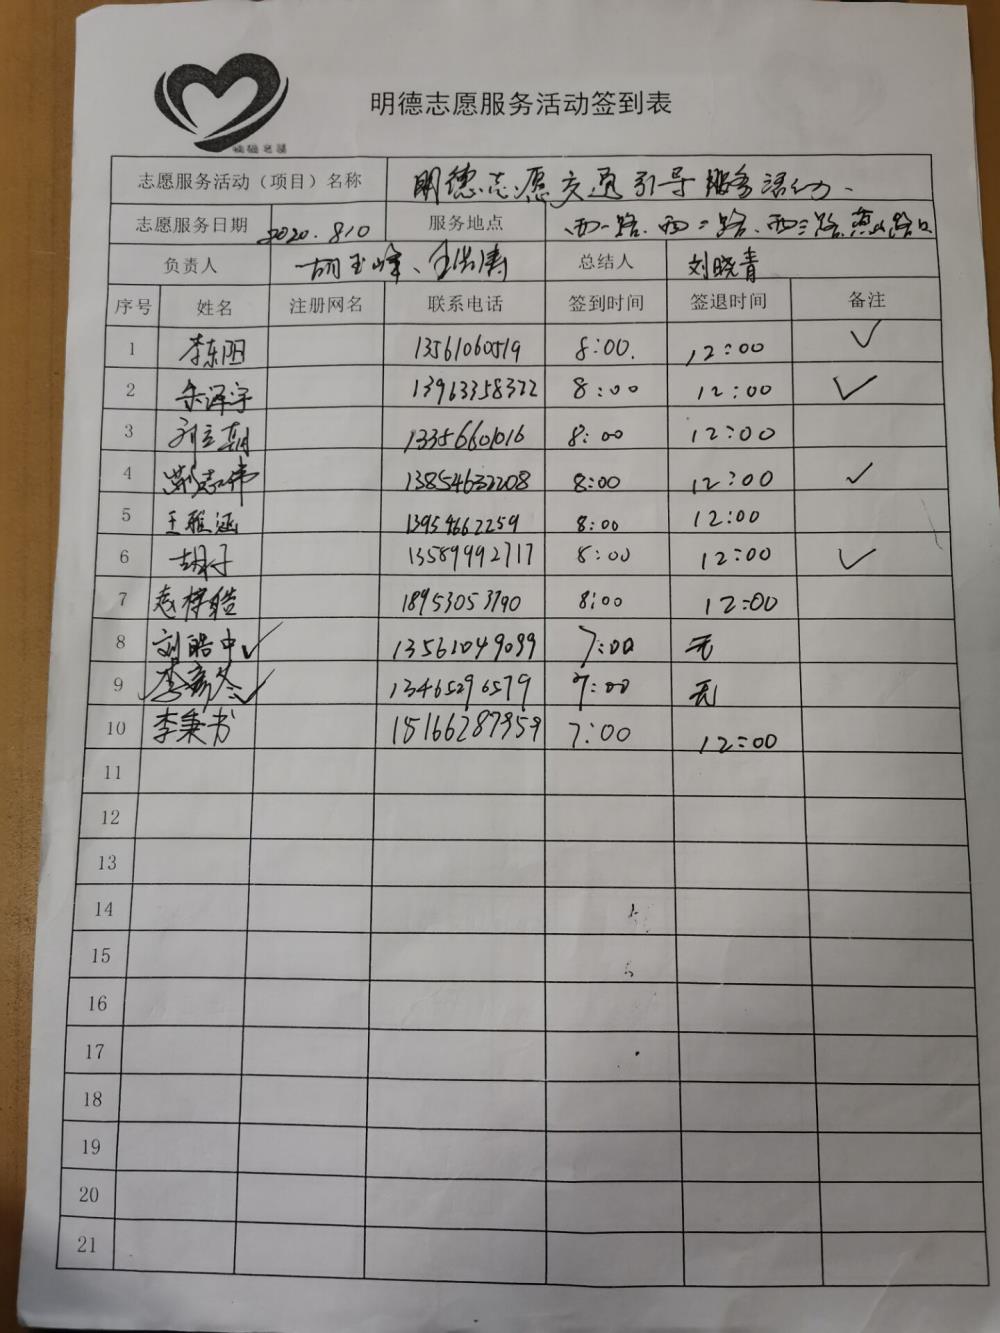 明德志愿服务活动签到表
志愿服务活动（项目）名称 明德志愿交通引导服务活动.
志愿服务日期 2020.810 服务地点 西一路、西二路、西三路 路口
负责人 胡玉峰、王 涛 总结人 刘晓青
序号 姓名 注册网名 联系电话 签到时间 签退时间 备注
1 李东阳 13561060519 8:00. 12:00 ✓
2 泽宇 13963358322 8:00 12:00 ✓
3 13356601016 8:00 12:00
4 志伟 13854632208 8:00 12:00 ✓
5 王雅涵 13954662259 8:00 12:00
6 胡子 13589992717 8:00 12:00 ✓
7 18953053790 8:00 12:00
8 刘皓中 ✓ 13561049099 7:00 无
9 李 ✓ 13465296579 7:00 无
10 李秉书 18166287959 7:00 12:00
11
12
13
14
15
16
17
18
19
20
21